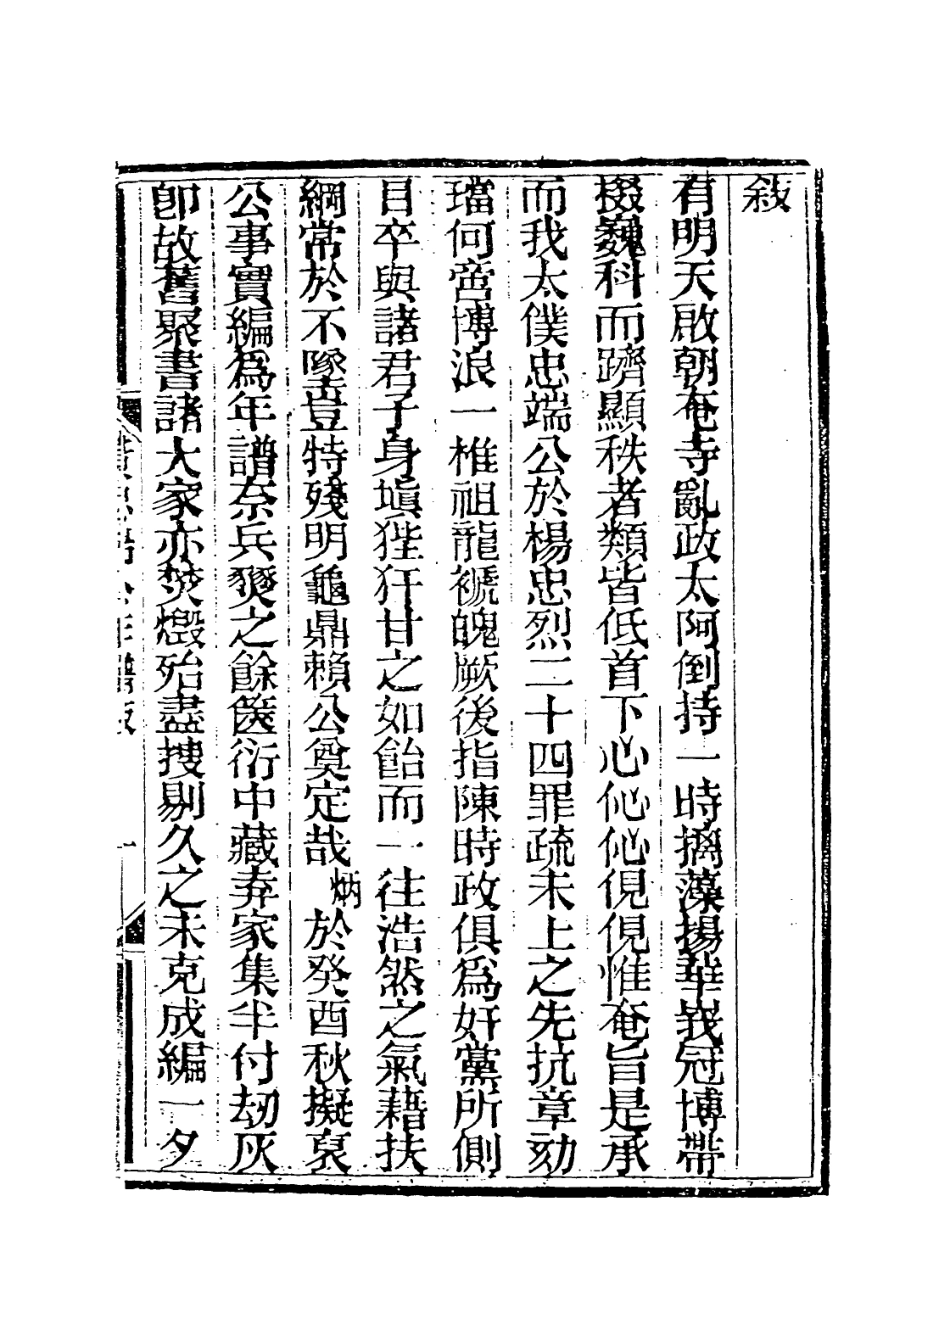 敍
有明天啟朝奄寺亂政太阿倒持一時摛藻揚華峩冠博帶
掇巍科而躋顯秩者類皆低首下心伈伈俔俔惟奄旨是承
而我太僕忠端公於楊忠烈二十四罪疏未上之先抗章劾
璫何啻博浪一椎祖龍褫魄厥後指陳時政俱爲奸黨所側
目卒與諸君子身塡狴犴甘之如飴而一往浩然之氣藉扶
綱常於不隊豈特殘明龜鼎賴公奠定哉炳於癸酉秋擬裒
公事實編爲年譜奈兵燹之餘篋衍中藏弆家集半付劫灰
卽故舊聚書諸大家亦焚燬殆盡搜剔久之未克成編一夕
黃忠端公年譜敍
一